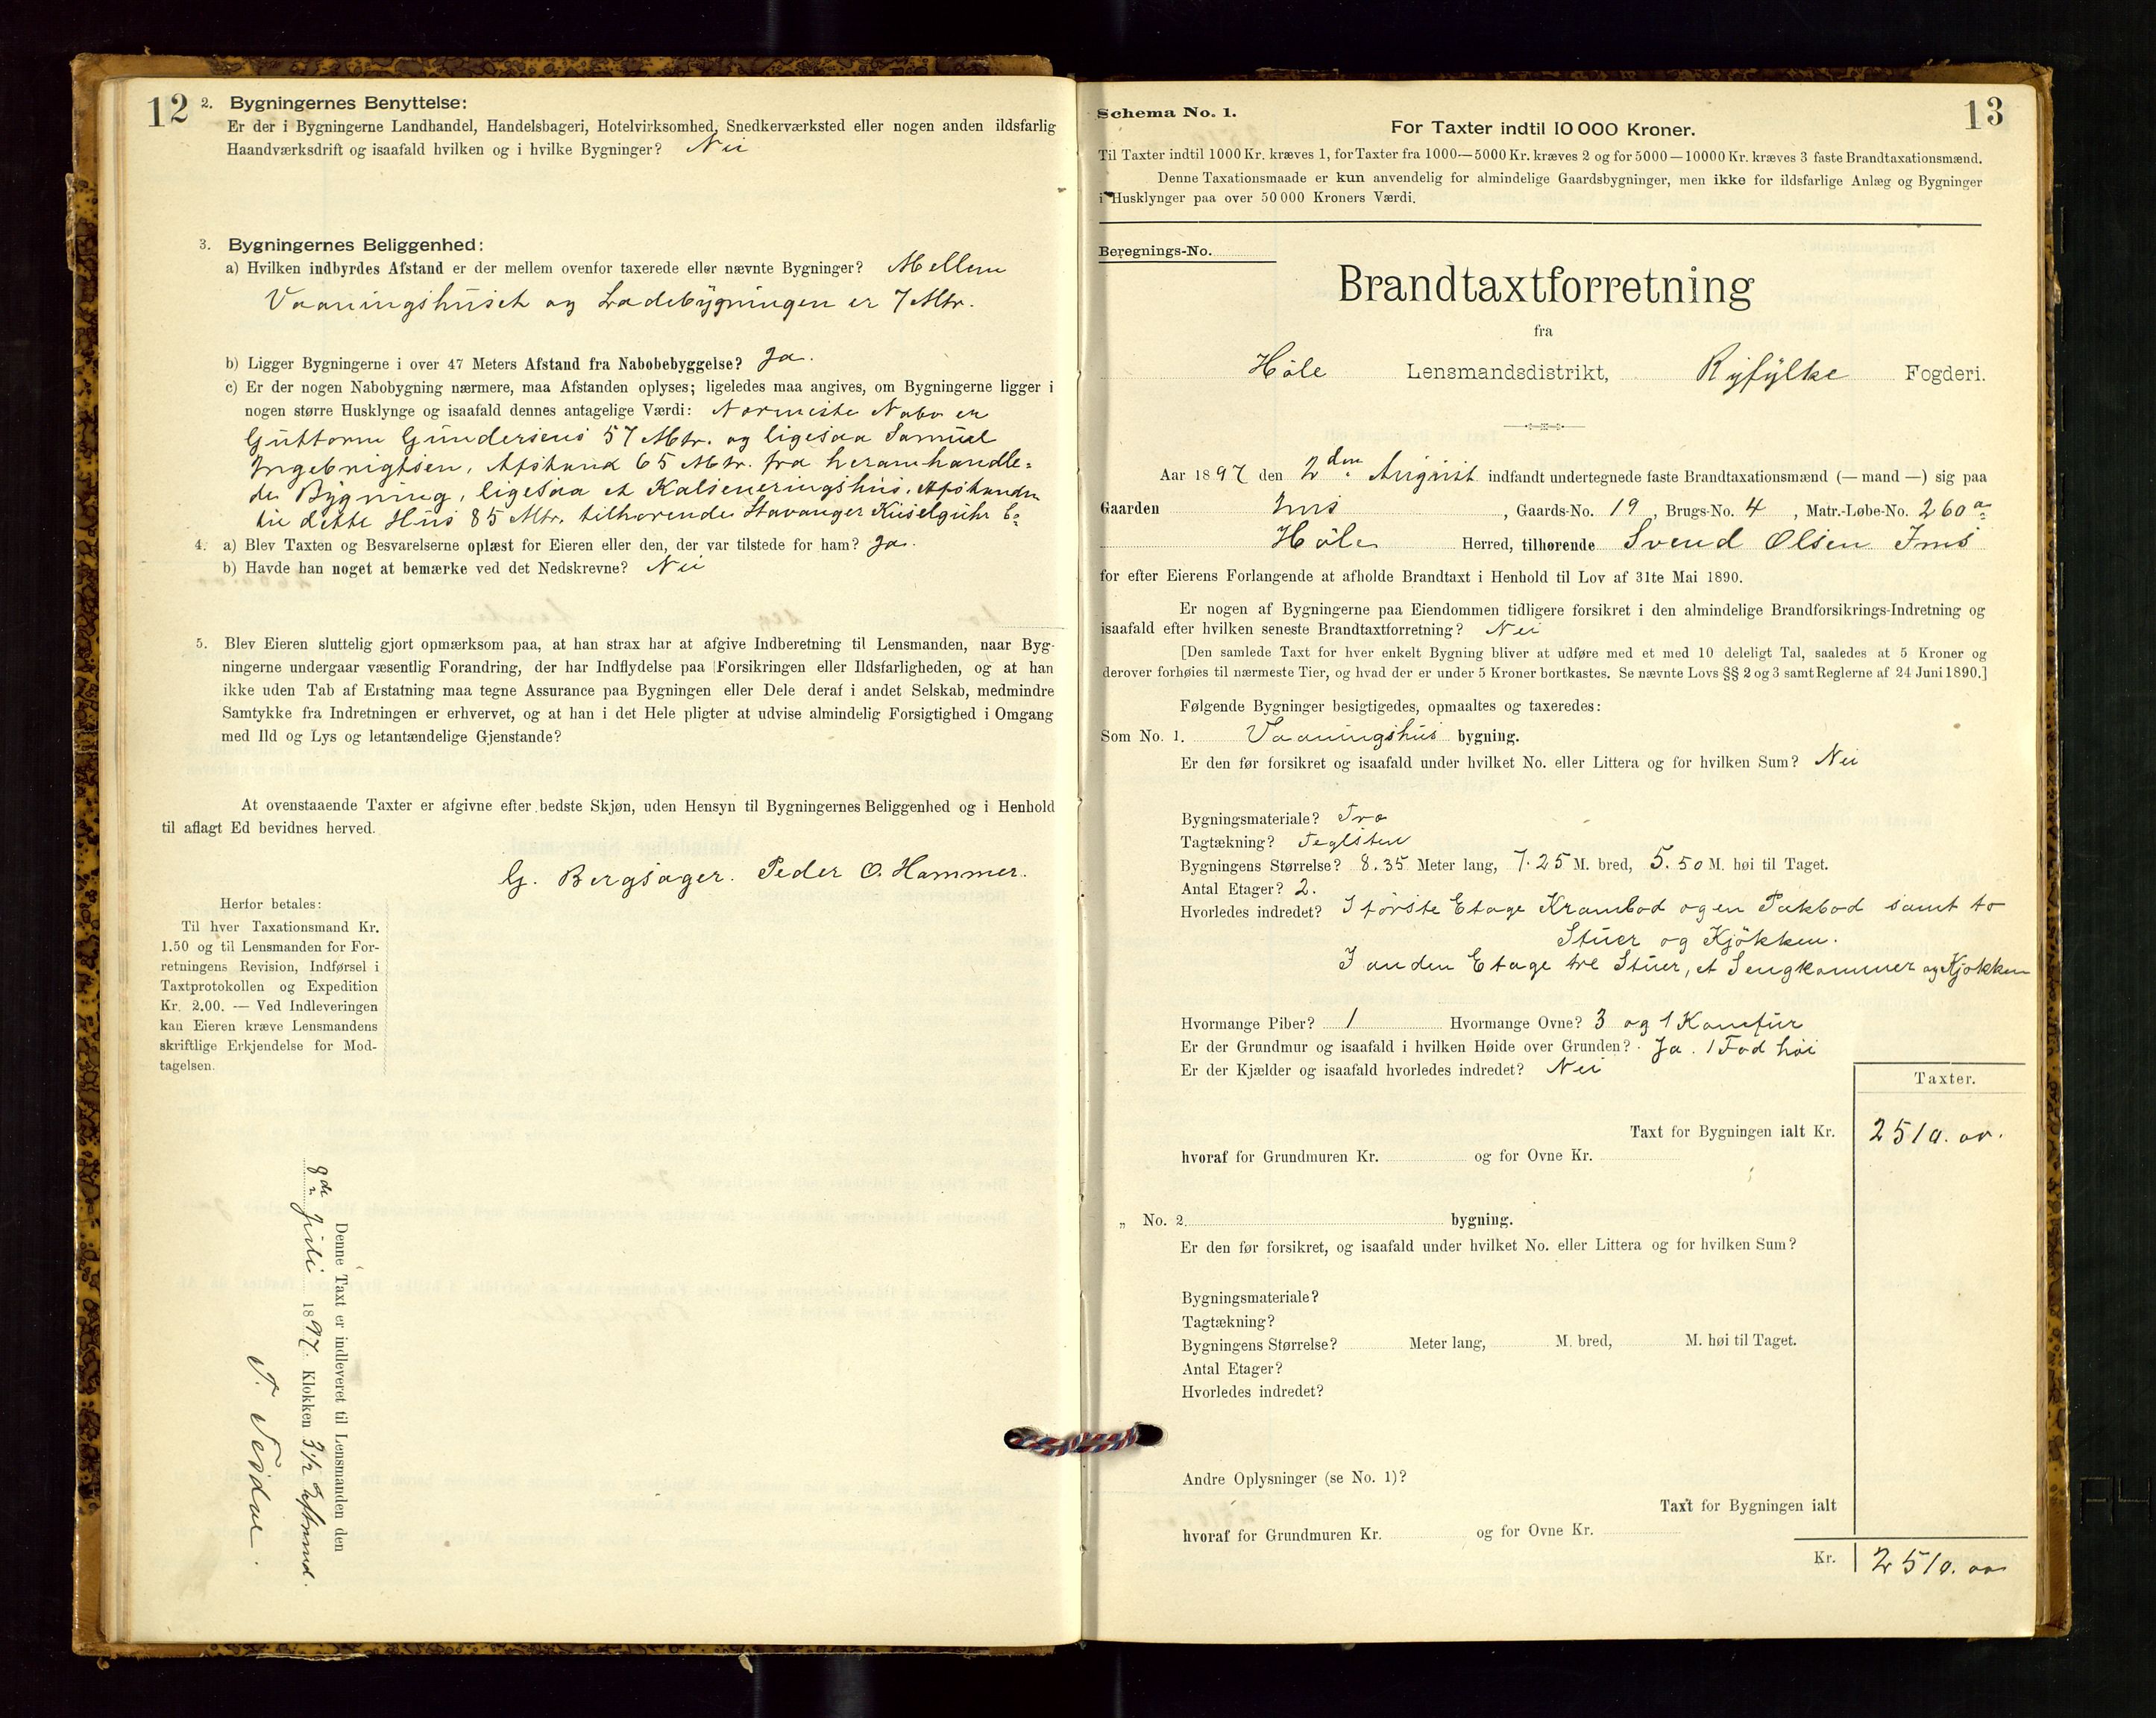 12
2. Bygningernes Benyttelse:
Er der i Bygningerne Landhandel, Handelsbageri, Hotelvirksomhed, Snedkerværksted eller nogen anden ildsfarlig
Haandværksdrift og isaafald hvilken og i hvilke Bygninger? Nei
3. Bygningernes Beliggenhed:
a) Hvilken indbyrdes Afstand er der mellem ovenfor taxerede eller nævnte Bygninger? Mellem
Vaaningshuset og Ladebygningen er 7 Mtr.
b) Ligger Bygningerne i over 47 Meters Afstand fra Nabobebyggelse? Ja.
c) Er der nogen Nabobygning nærmere, maa Afstanden oplyses; ligeledes maa angives, om Bygningerne ligger i
nogen større Husklynge og isaafald dennes antagelige Værdi: Nærmeste Nabo er
Guttorm Gundersens 57 Mtr. og ligesaa Samuel
Ingebrigtsen, Afstand 65 Mtr. fra heromhandle-
de Bygning, ligesaa et Kalseneringshus. Afstanden
til dette Hus 85 Mtr. tilhørende Stavanger Kiselguhr Co
4. a) Blev Taxten og Besvarelserne oplæst for Eieren eller den, der var tilstede for ham? Ja.
b) Havde han noget at bemærke ved det Nedskrevne? Nei
5. Blev Eieren sluttelig gjort opmærksom paa, at han strax har at afgive Indberetning til Lensmanden, naar Byg-
ningerne undergaar væsentlig Forandring, der har Indflydelse paa Forsikringen eller Ildsfarligheden, og at han
ikke uden Tab af Erstatning maa tegne Assurance paa Bygningen eller Dele deraf i andet Selskab, medmindre
Samtykke fra Indretningen er erhvervet, og at han i det Hele pligter at udvise almindelig Forsigtighed i Omgang
med Ild og Lys og letantændelige Gjenstande?
At ovenstaaende Taxter er afgivne efter bedste Skjøn, uden Hensyn til Bygningernes Beliggenhed og i Henhold
til aflagt Ed bevidnes herved.
G. Bergsager. Peder O. Hammer.
Herfor betales:
Til hver Taxationsmand Kr.
1.50 og til Lensmanden for For-
retningens Revision, Indførsel i
Taxtprotokollen og Expedition
Kr. 2.00. — Ved Indleveringen
kan Eieren kræve Lensmandens
skriftlige Erkjendelse for Mod-
tagelsen.
Denne Taxt er indleveret til Lensmanden den
9de Juli 1897. Klokken 3 1/2 Eftermd.
T. Nesdal.
13
Schema No. 1.
For Taxter indtil 10 000 Kroner.
Til Taxter indtil 1000 Kr. kræves 1, for Taxter fra 1000—5000 Kr. kræves 2 og for 5000—10000 Kr. kræves 3 faste Brandtaxationsmænd.
Denne Taxationsmaade er kun anvendelig for almindelige Gaardsbygninger, men ikke for ildsfarlige Anlæg og Bygninger
i Husklynger paa over 50 000 Kroners Værdi.
Beregnings-No.
Brandtaxtforretning
fra
Høle Lensmandsdistrikt, Ryfylke Fogderi.
Aar 1897 den 2den August indfandt undertegnede faste Brandtaxationsmænd (— mand —) sig paa
Gaarden Ims, Gaards-No. 19, Brugs-No. 4, Matr.-Løbe-No. 260a
Høle Herred, tilhørende Svend Olsen Ims
for efter Eierens Forlangende at afholde Brandtaxt i Henhold til Lov af 31te Mai 1890.
Er nogen af Bygningerne paa Eiendommen tidligere forsikret i den almindelige Brandforsikrings-Indretning og
isaafald efter hvilken seneste Brandtaxtforretning? Nei
[Den samlede Taxt for hver enkelt Bygning bliver at udføre med et med 10 deleligt Tal, saaledes at 5 Kroner og
derover forhøies til nærmeste Tier, og hvad der er under 5 Kroner bortkastes. Se nævnte Lovs §§ 2 og 3 samt Reglerne af 24 Juni 1890.]
Følgende Bygninger besigtigedes, opmaaltes og taxeredes:
Som No. 1. Vaaningshus bygning.
Er den før forsikret og isaafald under hvilket No. eller Littera og for hvilken Sum? Nei
Bygningsmateriale? Træ
Tagtækning? Teglsten
Bygningens Størrelse? 8.35 Meter lang, 7.25 M. bred, 5.50 M. høi til Taget.
Antal Etager? 2.
Hvorledes indredet? I første Etage Krambod og en Pakbod samt to
Stuer og Kjøkken.
I anden Etage tre Stuer, et Sengkammer og Kjøkken
Hvormange Piber? 1 Hvormange Ovne? 3 og 1 Komfur
Er der Grundmur og isaafald i hvilken Høide over Grunden? Ja. 1 Fod høi
Er der Kjælder og isaafald hvorledes indredet? Nei
Taxter.
Taxt for Bygningen ialt Kr. 2510.00.
hvoraf for Grundmuren Kr. og for Ovne Kr.
„ No. 2 bygning.
Er den før forsikret, og isaafald under hvilket No. eller Littera og for hvilken Sum?
Bygningsmateriale?
Tagtækning?
Bygningens Størrelse? Meter lang, M. bred, M. høi til Taget.
Antal Etager?
Hvorledes indredet?
Andre Oplysninger (se No. 1)?
Taxt for Bygningen ialt
hvoraf for Grundmuren Kr. og for Ovne Kr.
Kr. 2510.00